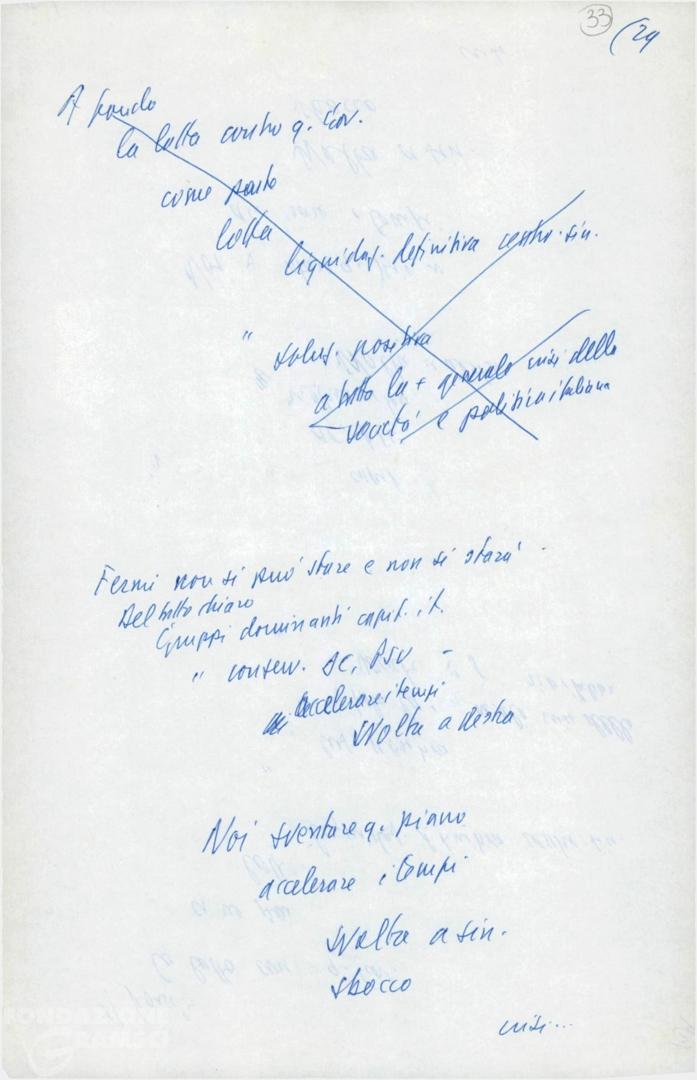 33
(24
A fondo
la lotta contro q. Gov.
come parte
lotta
liquidaz. definitiva centro-sin.
" soluz. positiva
a tutta la + generale crisi della
società e politica italiana
Fermi non si può stare e non si starà.
Del tutto chiaro
Gruppi dominanti capit. it.
" conserv. DC, PSU -
accelerare i tempi
svolta a destra
Noi sventare q. piano
accelerare i tempi
svolta a sin.
sbocco
crisi...
FONDAZIONE
GRAMSCI